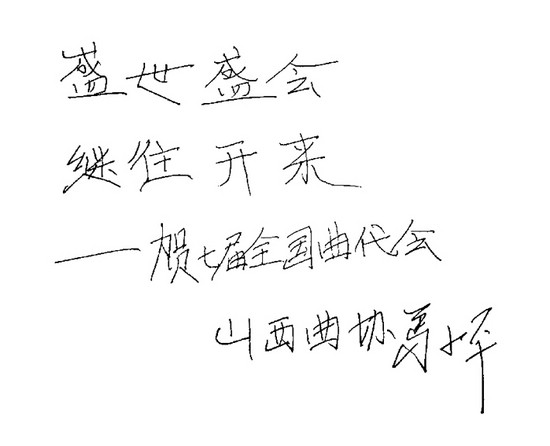 盛世盛会
继往开来
——贺七届全国曲代会
山西曲协